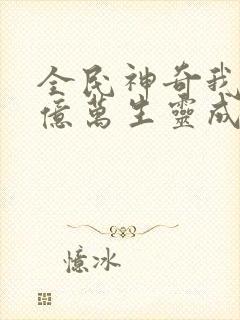 全民神奇我
億萬生靈成
憶冰